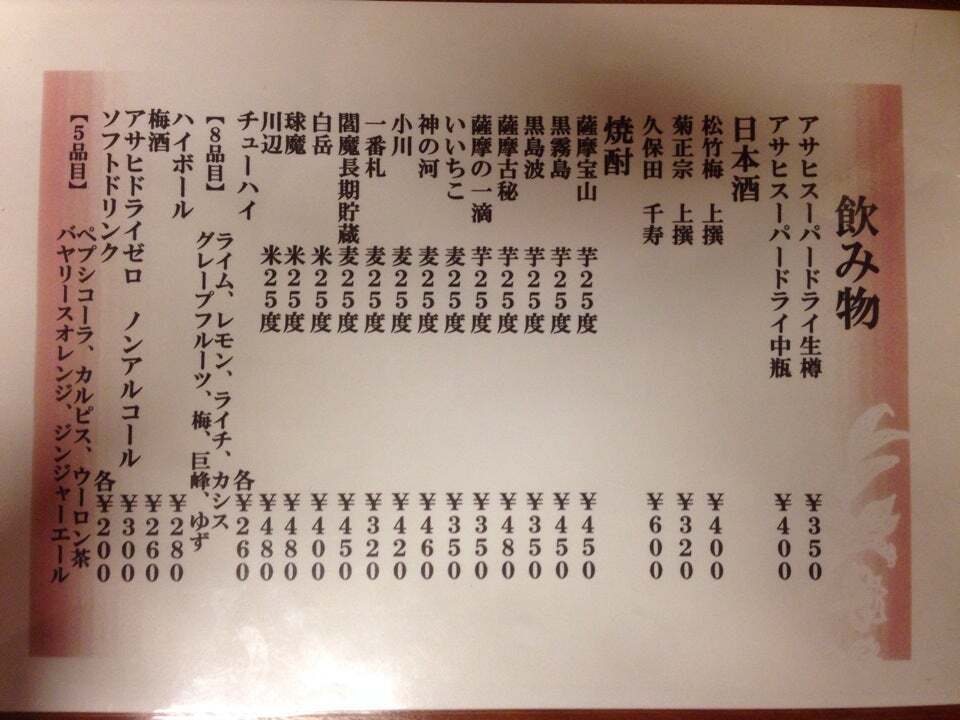 飲み物
アサヒスーパードライ生樽 ￥350
アサヒスーパードライ中瓶 ￥400
日本酒
松竹梅 上撰 ￥400
菊正宗 上撰 ￥320
久保田 千寿 ￥600
焼酎
薩摩宝山 芋25度 ￥450
黒霧島 芋25度 ￥450
黒島波 芋25度 ￥350
薩摩古秘 芋25度 ￥480
薩摩の一滴 芋25度 ￥350
いいちこ 麦25度 ￥350
神の河 麦25度 ￥460
小川 麦25度 ￥420
一番札 麦25度 ￥320
閻魔長期貯蔵 麦25度 ￥450
白岳 米25度 ￥400
球魔 米25度 ￥480
川辺 米25度 ￥480
チューハイ 各￥260
【8品目】 ライム、レモン、ライチ、カシス
グレープフルーツ、梅、巨峰、ゆず
ハイボール ￥280
梅酒 ￥260
アサヒドライゼロ ノンアルコール ￥300
ソフトドリンク 各￥200
【5品目】 ペプシコーラ、カルピス、ウーロン茶
バヤリースオレンジ、ジンジャーエール